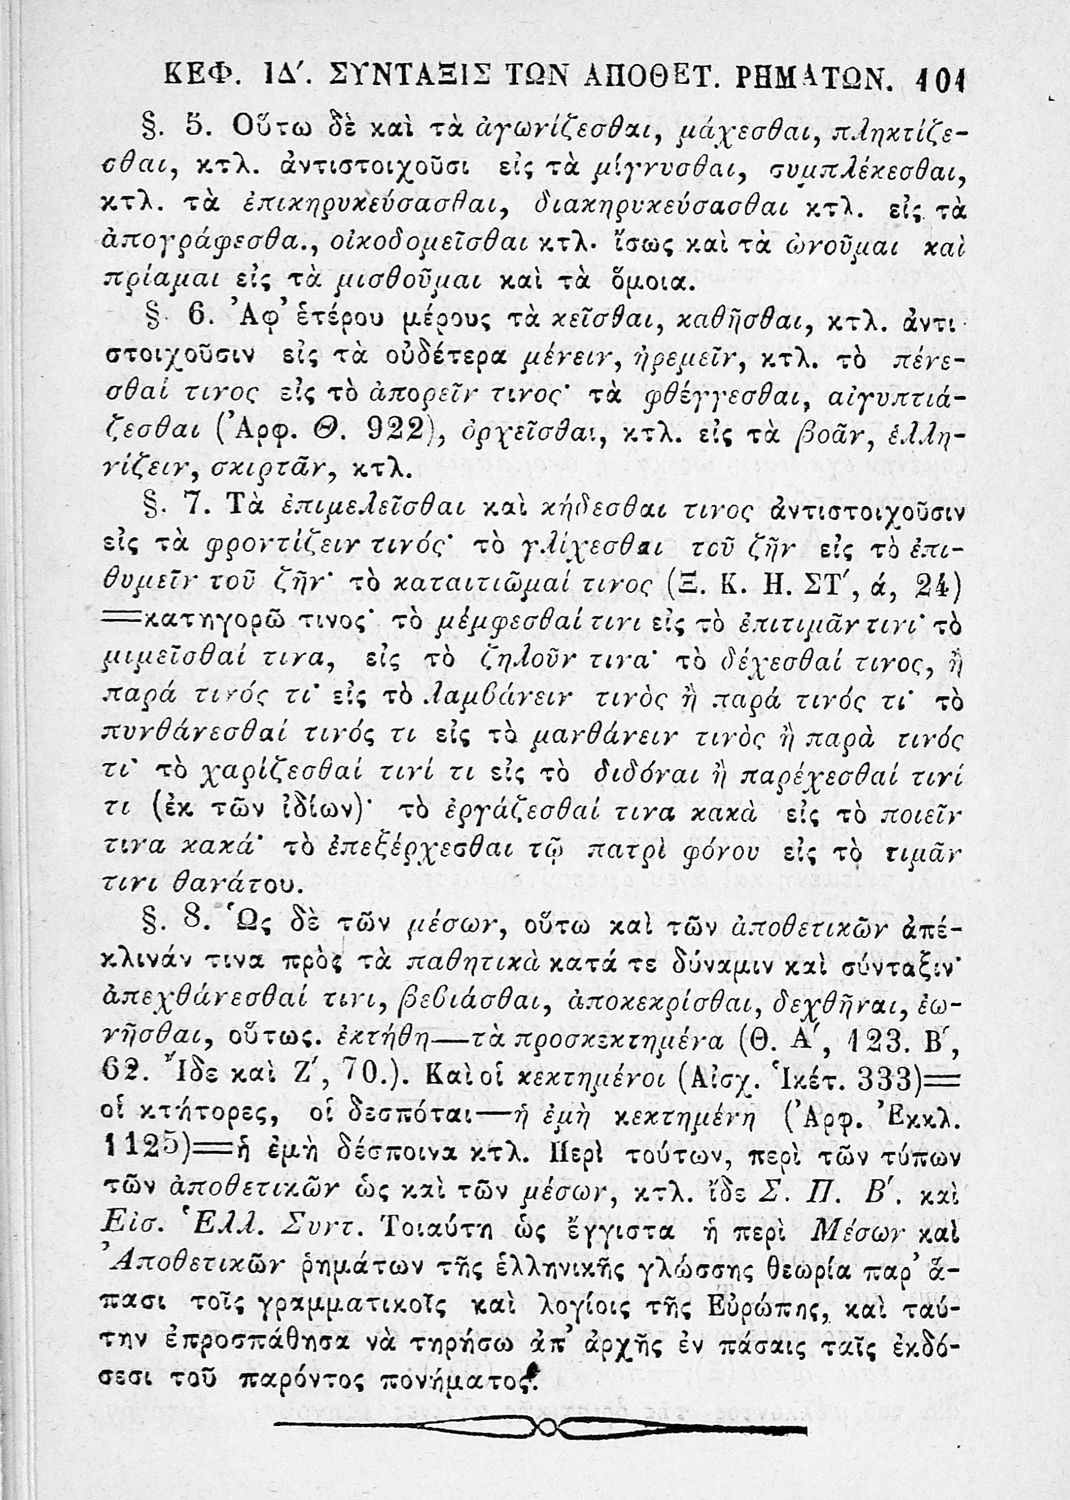 ΚΕΦ. ΙΔ΄. ΣΥΝΤΑΞΙΣ ΤΩΝ ΑΠΟΘΕΤ. ΡΗΜΑΤΩΝ. 101
§. 5. Οὕτω δὲ καὶ τὰ ἀγωνίζεσθαι, μάχεσθαι, πληκτίζε-
σθαι, κτλ. ἀντιστοιχοῦσι εἰς τὰ μίγνυσθαι, συμπλέκεσθαι,
κτλ. τὰ ἐπικηρυκεύσασθαι, διακηρυκεύσασθαι κτλ. εἰς τὰ
ἀπογράφεσθα., οἰκοδομεῖσθαι κτλ. ἴσως καὶ τὰ ὠνοῦμαι καὶ
πρίαμαι εἰς τὰ μισθοῦμαι καὶ τὰ ὅμοια.
§. 6. Ἀφ᾽ ἑτέρου μέρους τὰ κεῖσθαι, καθῆσθαι, κτλ. ἀντι
στοιχοῦσιν εἰς τὰ οὐδέτερα μένειν, ἠρεμεῖν, κτλ. τὸ πένε-
σθαί τινος εἰς τὸ ἀπορεῖν τινος· τὰ φθέγγεσθαι, αἰγυπτιά-
ζεσθαι (Ἀρφ. Θ. 922), ὀρχεῖσθαι, κτλ. εἰς τὰ βοᾶν, ἑλλη-
νίζειν, σκιρτᾶν, κτλ.
§. 7. Τὰ ἐπιμελεῖσθαι καὶ κήδεσθαι τινος ἀντιστοιχοῦσιν
εἰς τὰ φροντίζειν τινός· τὸ γλίχεσθαι τοῦ ζῆν εἰς τὸ ἐπι-
θυμεῖν τοῦ ζῆν· τὸ καταιτιῶμαί τινος (Ξ. Κ. Η. ΣΤ΄, ά, 24)
=κατηγορῶ τινος· τὸ μέμφεσθαί τινι εἰς τὸ ἐπιτιμᾶν τινι· τὸ
μιμεῖσθαί τινα, εἰς τὸ ζηλοῦν τινα· τὸ δέχεσθαί τινος, ἢ
παρά τινός τι· εἰς τὸ λαμβάνειν τινὸς ἢ παρά τινός τι· τὸ
πυνθάνεσθαί τινός τι εἰς τὸ μανθάνειν τινὸς ἢ παρὰ τινός
τι· τὸ χαρίζεσθαί τινί τι εἰς τὸ διδόναι ἢ παρέχεσθαί τινί
τι (ἐκ τῶν ἰδίων)· τὸ ἐργάζεσθαί τινα κακὰ εἰς τὸ ποιεῖν
τινα κακά· τὸ ἐπεξέρχεσθαι τῷ πατρὶ φόνου εἰς τὸ τιμᾶν
τινι θανάτου.
§. 8. Ὡς δὲ τῶν μέσων, οὕτω καὶ τῶν ἀποθετικῶν ἀπέ-
κλινάν τινα πρὸς τὰ παθητικὰ κατά τε δύναμιν καὶ σύνταξιν·
ἀπεχθάνεσθαί τινι, βεβιάσθαι, ἀποκεκρίσθαι, δεχθῆναι, ἐω-
νῆσθαι, οὕτως. ἐκτήθη—τὰ προσκεκτημένα (Θ. Α΄, 123. Β΄,
62. Ἴδε καὶ Ζ΄, 70.). Καὶ οἱ κεκτημένοι (Αἰσχ. Ἱκέτ. 333)=
οἱ κτήτορες, οἱ δεσπόται—ἡ ἐμὴ κεκτημένη (Ἀρφ. Ἐκκλ.
1125)=ἡ ἐμὴ δέσποινα κτλ. Περὶ τούτων, περὶ τῶν τύπων
τῶν ἀποθετικῶν ὡς καὶ τῶν μέσων, κτλ. ἴδε Σ. Π. Β΄. καὶ
Εἰσ. Ἑλλ. Συντ. Τοιαύτη ὡς ἔγγιστα ἡ περὶ Μέσων καὶ
Ἀποθετικῶν ῥημάτων τῆς ἑλληνικῆς γλώσσης θεωρία παρ᾽ ἅ-
πασι τοῖς γραμματικοῖς καὶ λογίοις τῆς Εὐρώπης, καὶ ταύ-
την ἐπροσπάθησα νὰ τηρήσω ἀπ᾽ ἀρχῆς ἐν πάσαις ταῖς ἐκδό-
σεσι τοῦ παρόντος πονήματος.